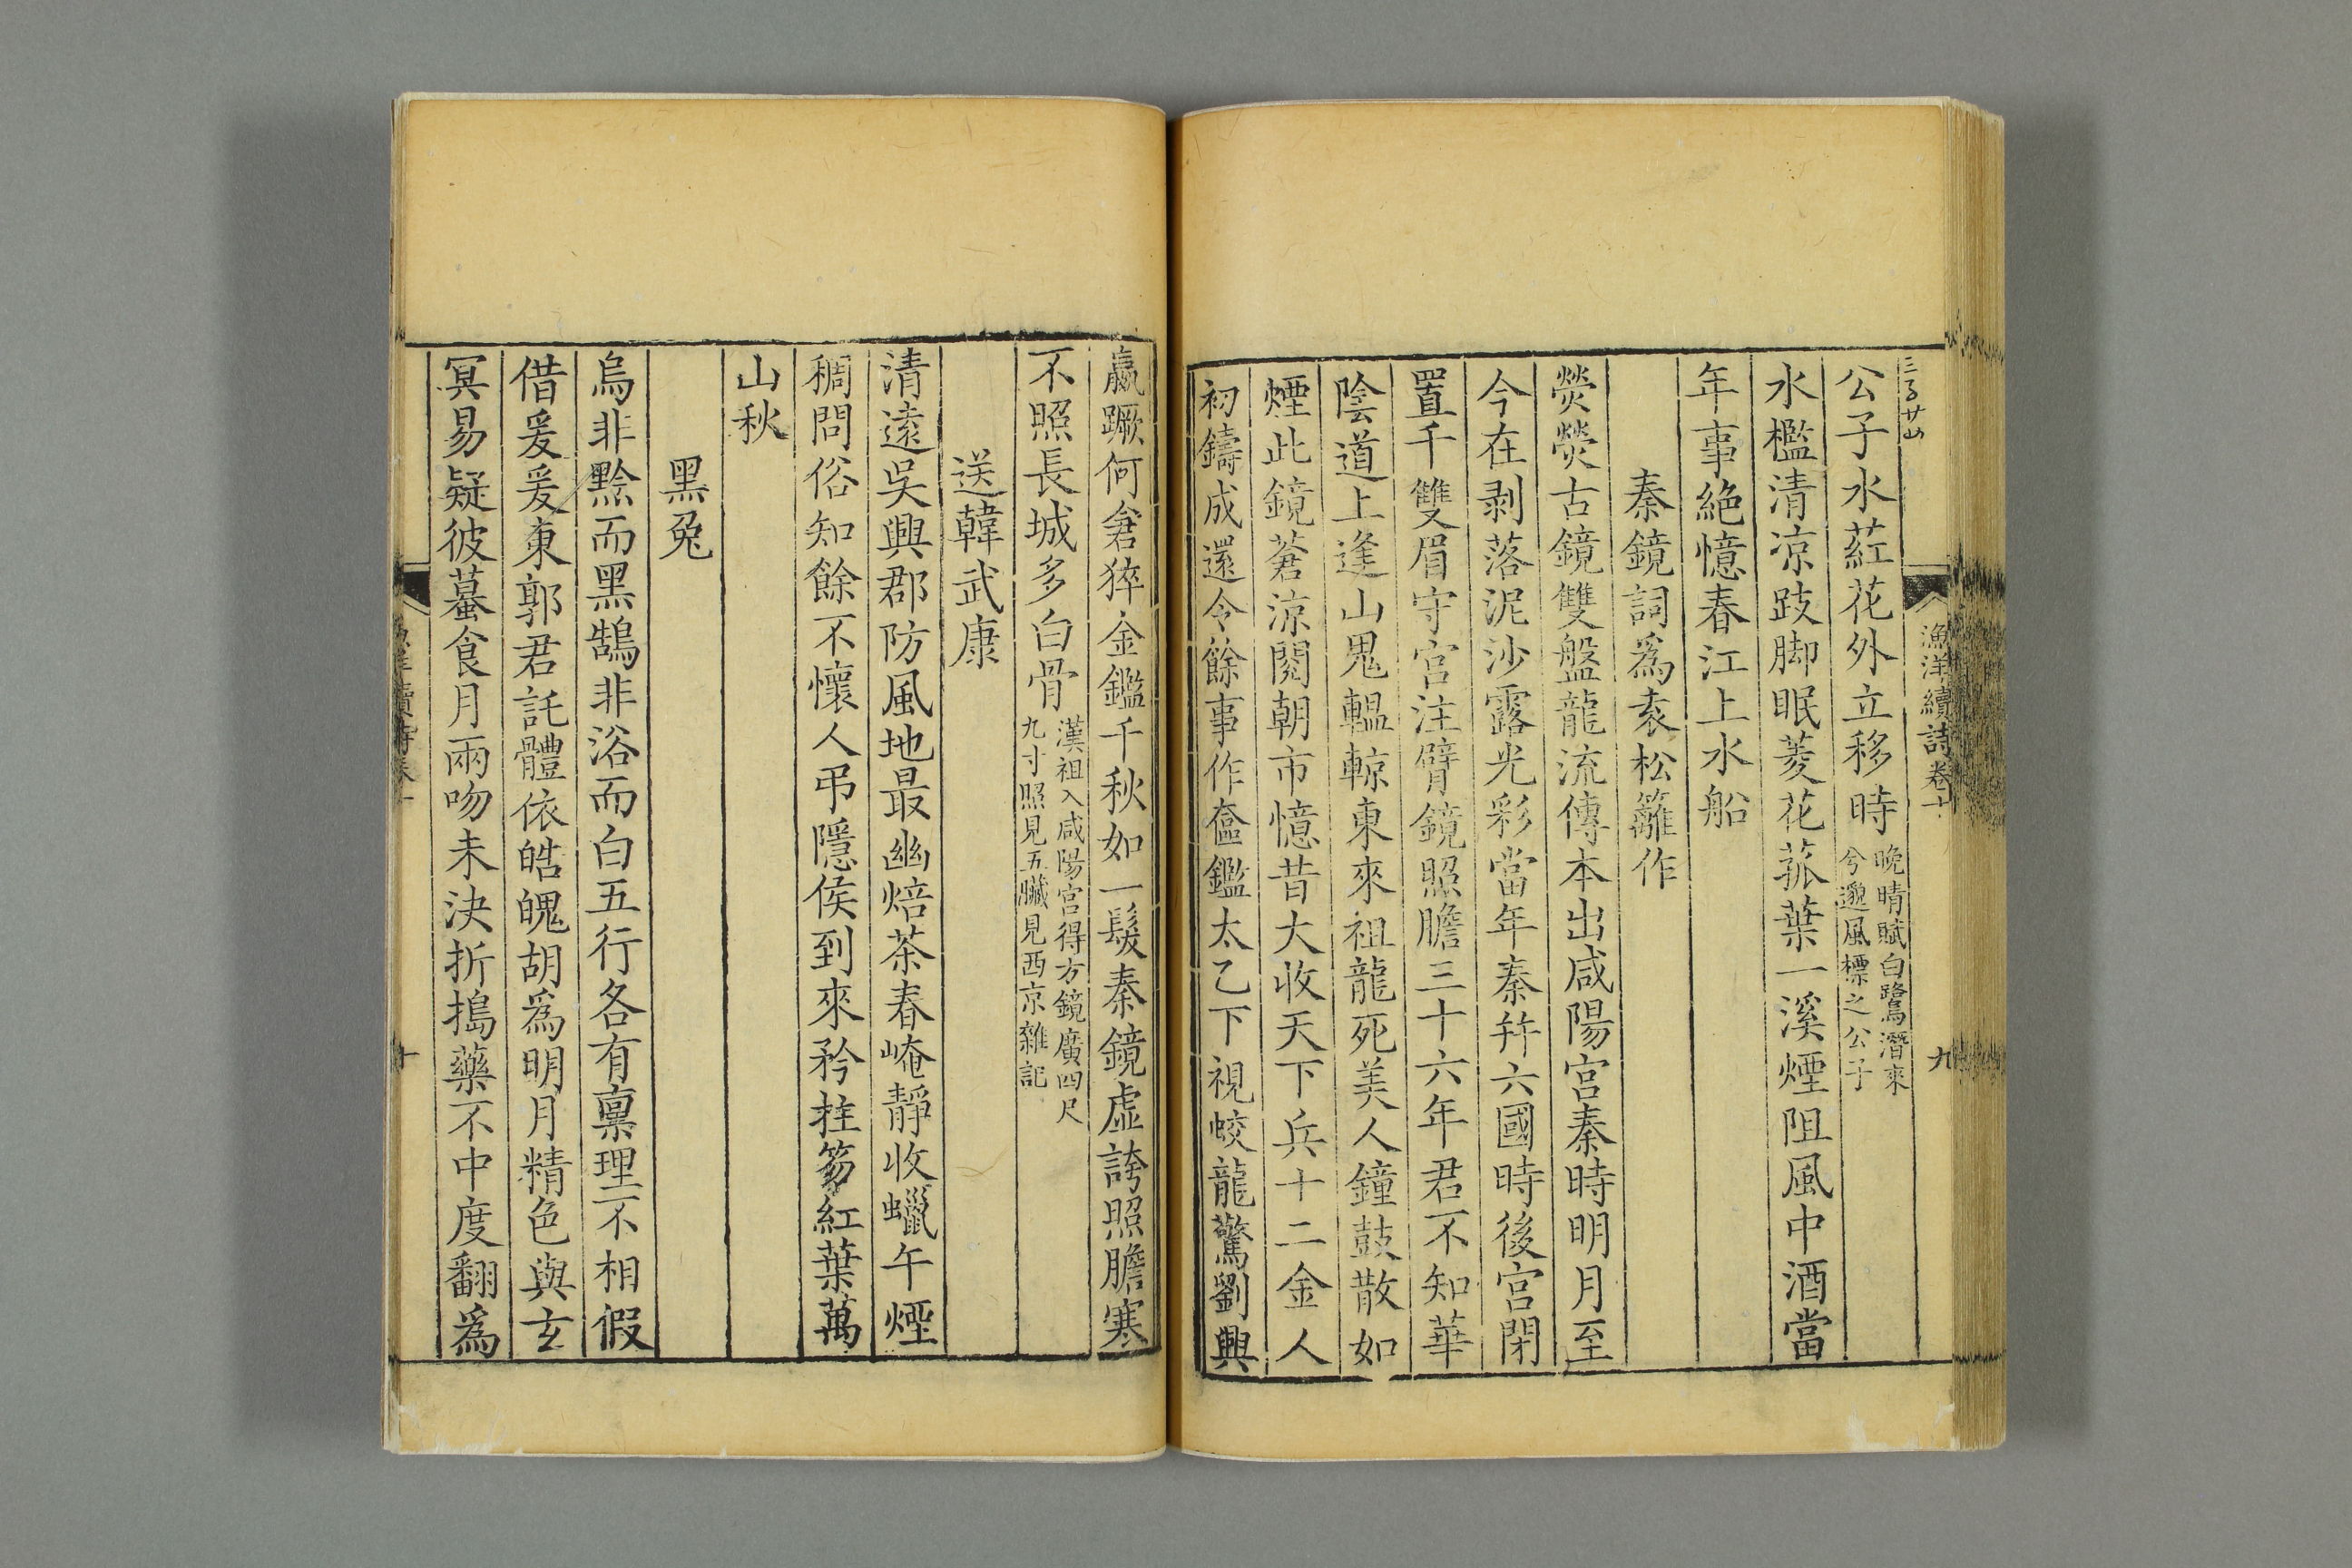 漁洋續詩卷十
九
公子水葒花外立移時晚晴賦白鷺潛來兮邈風標之公子
水檻清凉跂脚眠菱花菰葉一溪煙阻風中酒當
年事絶憶春江上水船
秦鏡詞爲袁松籬作
熒熒古鏡雙盤龍流傳本出咸陽宫秦時明月至
今在剥落泥沙露光彩當年秦幷六國時後宫閉
置千雙眉守宫注臂鏡照膽三十六年君不知華
陰道上逢山鬼轀輬東來祖龍死美人鐘鼓散如
煙此鏡蒼凉閱朝市憶昔大收天下兵十二金人
初鑄成還令餘事作奩鑑太乙下視蛟龍驚劉興
嬴蹶何倉猝金鑑千秋如一髮秦鏡虚誇照膽寒
不照長城多白骨漢祖入咸陽宫得方鏡廣四尺九寸照見五臟見西京雜記
送韓武康
清遠吳興郡防風地最幽焙茶春崦靜收蠟午煙
稠問俗知餘不懷人弔隱侯到來矜拄笏紅葉萬
山秋
黑兔
烏非黔而黑鵠非浴而白五行各有禀理不相假
借爰爰東郭君託體依皓魄胡爲明月精色與玄
冥易疑彼蟇食月兩吻未决折搗藥不中度翻爲